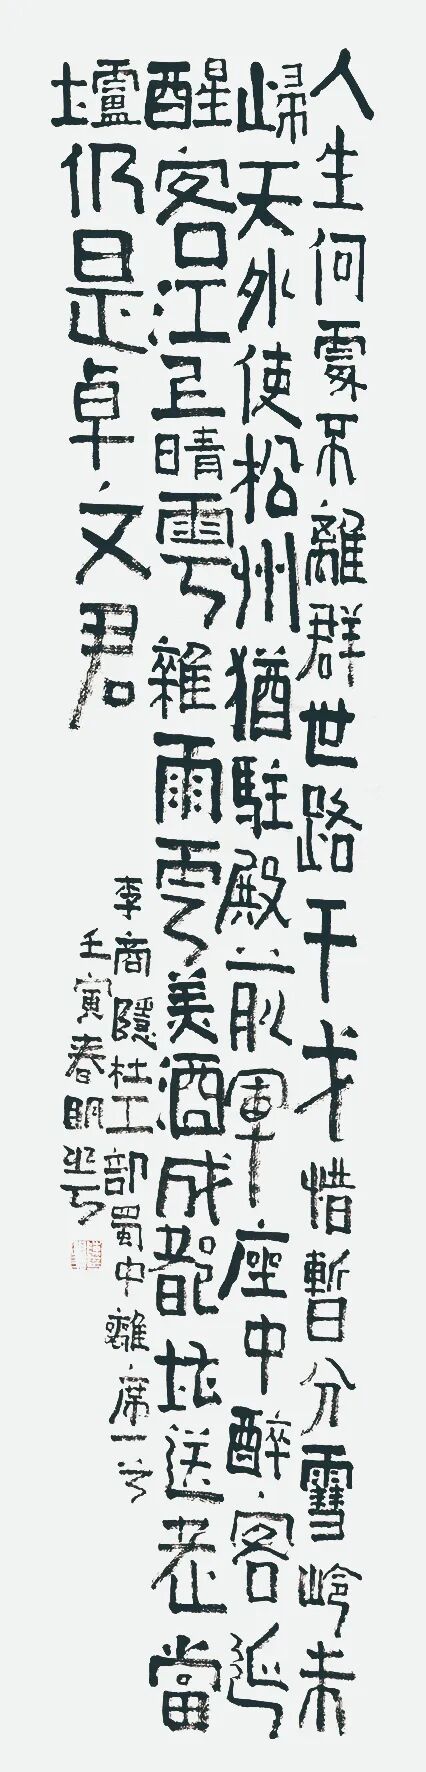 人生何處不離群世路干戈惜暫分雪嶺未
歸天外使松州猶駐殿前軍座中醉客延
醒客江上晴雲雜雨雲美酒成都堪送老當
壚仍是卓文君
李商隱杜工部蜀中離席一首
壬寅春明